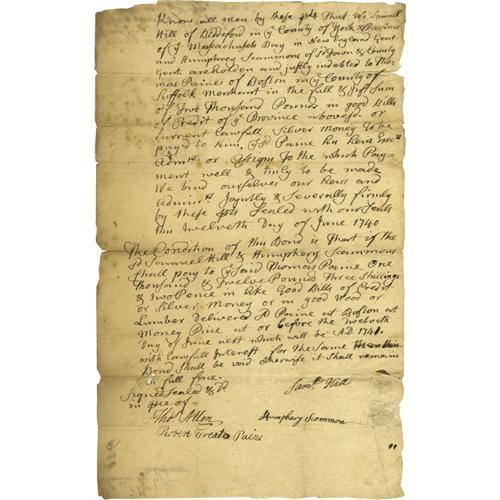 Know all men by these pts That We Samuel
Hill of Biddeford in ye County of York & Province
of ye Massachusets Bay in New England Gent
and Humphrey Scammons of sd Town & County
Gent. are holden and justly indebted to Tho
mas Paines of Boston in ye County of
Suffolk Merchant in the full & Just Sum
of Two Thousand Pounds in good Bills
of Credit of ye Province abovesd or
Current Lawfull Silver Money to be
payd to him, ye sd Paine his heirs Execrs
Admrs or Assigns To the which Pay-
ment well & truly to be made
We bind ourselves our heirs and
Adminrs Joyntly & Severally firmly
by these pts Sealed with our Seals
this Twelveth Day of June 1740
The Condition of this Bond is That if the
sd Samuel Hill & Humphery Scammons
Shall pay to ye Said Thomas Paine One
thousand & Twelve Pound Three Shillings
& two Pence in like Good Bills of Credit
or Silver Money or in good Wood or
Lumber Delivered sd Paine at Boston at
Money Price at or before the Twelveth
Day of June next which will be A.D. 1741
with Lawfull Interest for the Same
Bond Shall be void otherwise it Shall remain
in full force.
Signed Sealed & Dd
in pce of
Samll Hill
Thos Allen
Humphery Scammon
Robert Treat Paine